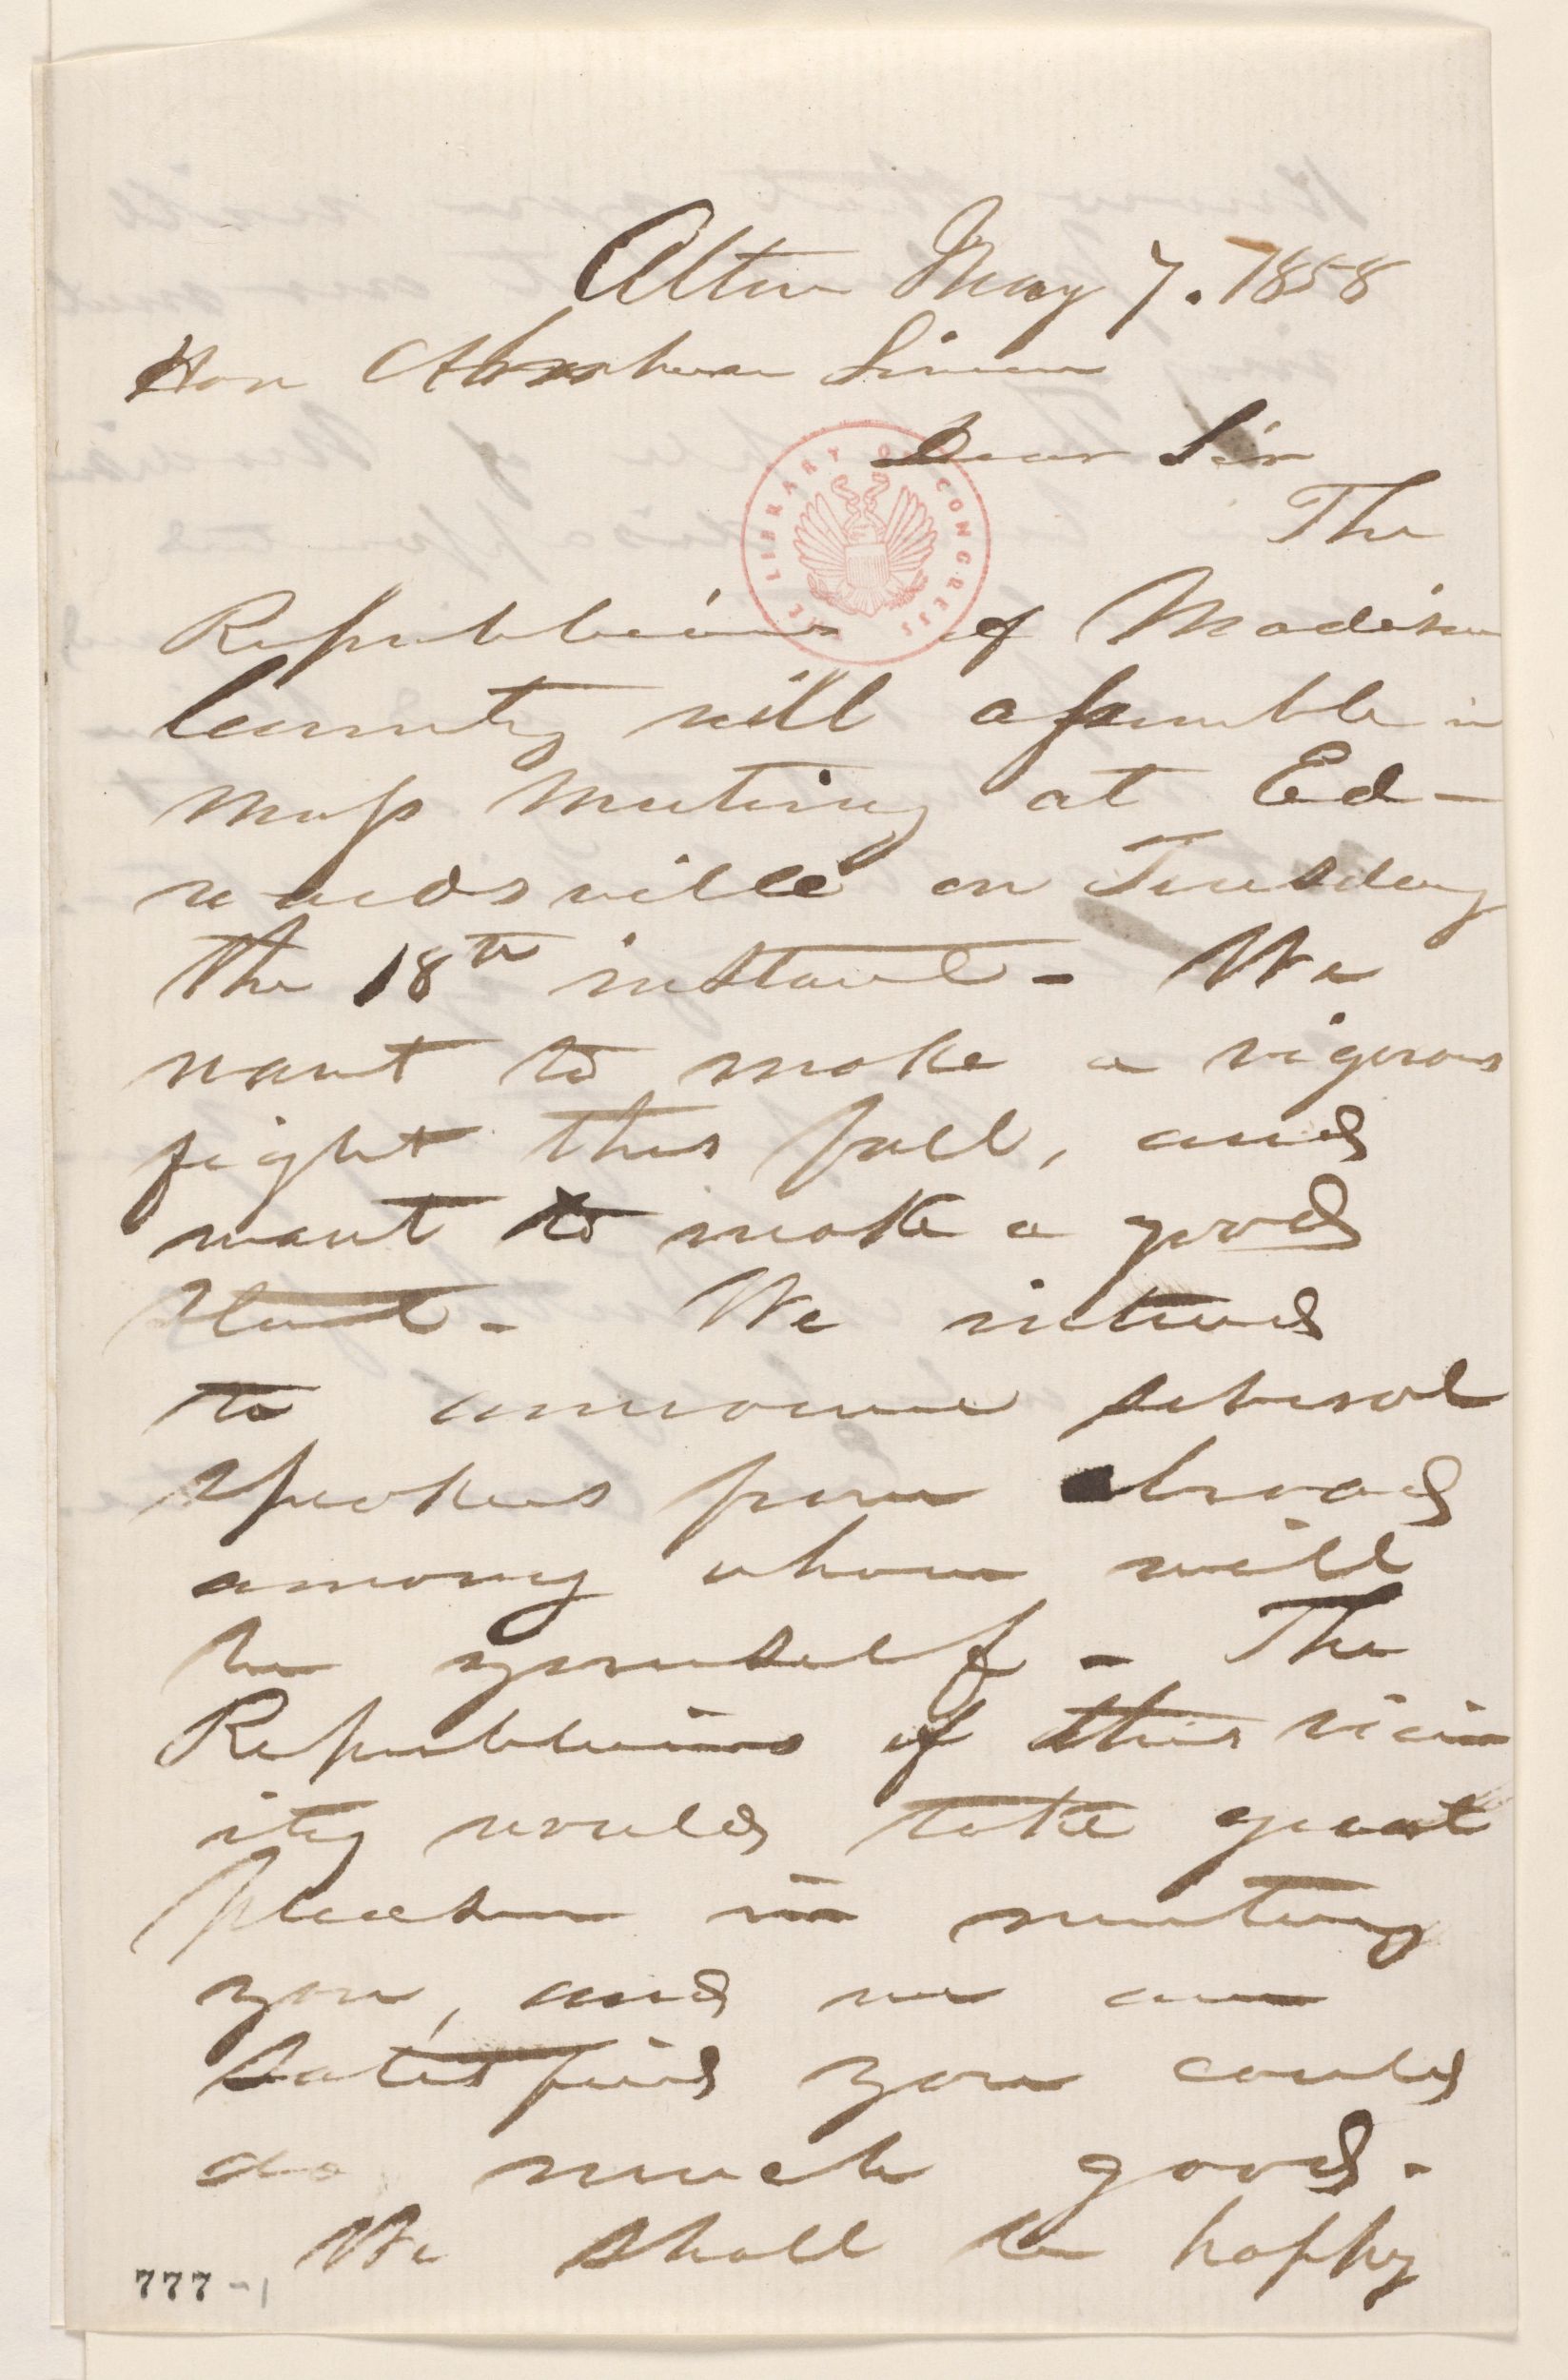 Alton May 7. 1858
Hon Abraham Lincoln
Dear Sir
The
Republicans of Madison
County will assemble in
mass meeting at Ed-
wardsville on Tuesday
the 18th instant - We
want to make a vigorous
fight this fall, and
want to make a good
start - We intend
to announce several
speakers from abroad
among whom will
be yourself - The
Republicans of this vicin
ity would take great
pleasure in meeting
you, and we are
satisfied you could
do much good -
We shall be happy
THE LIBRARY OF CONGRESS
777-1